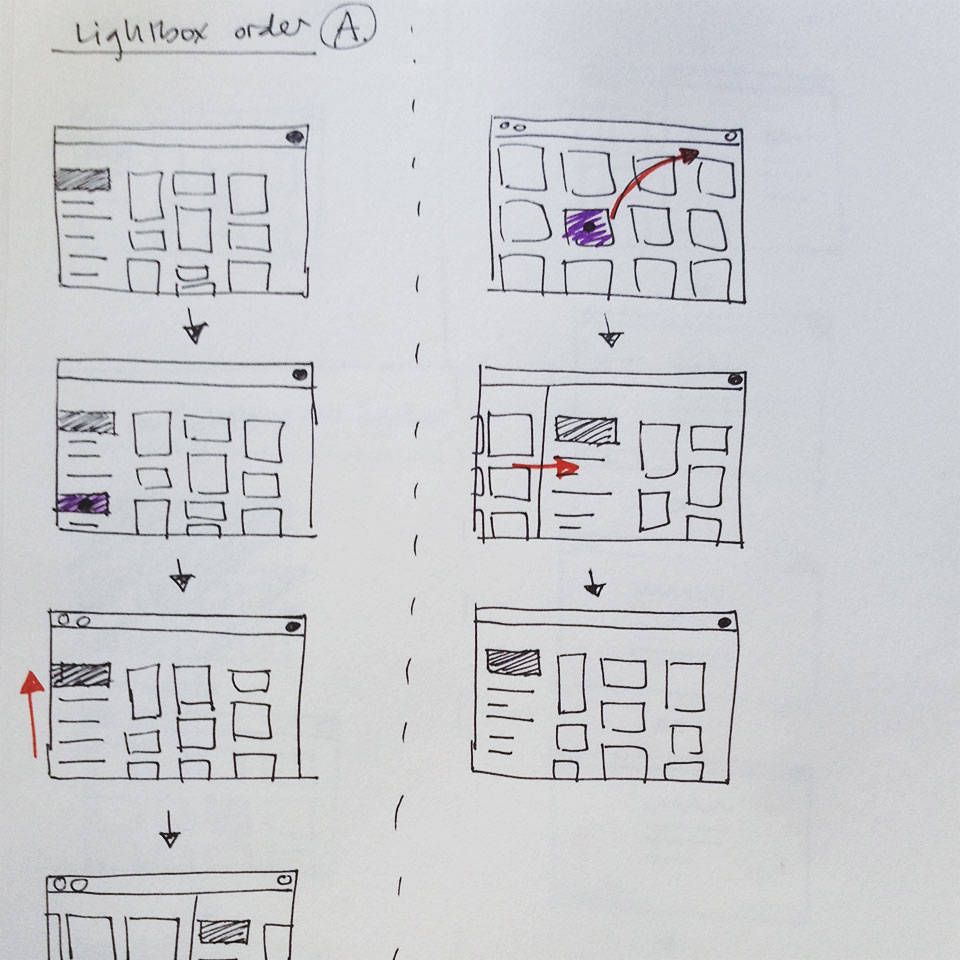 Lightbox order A.